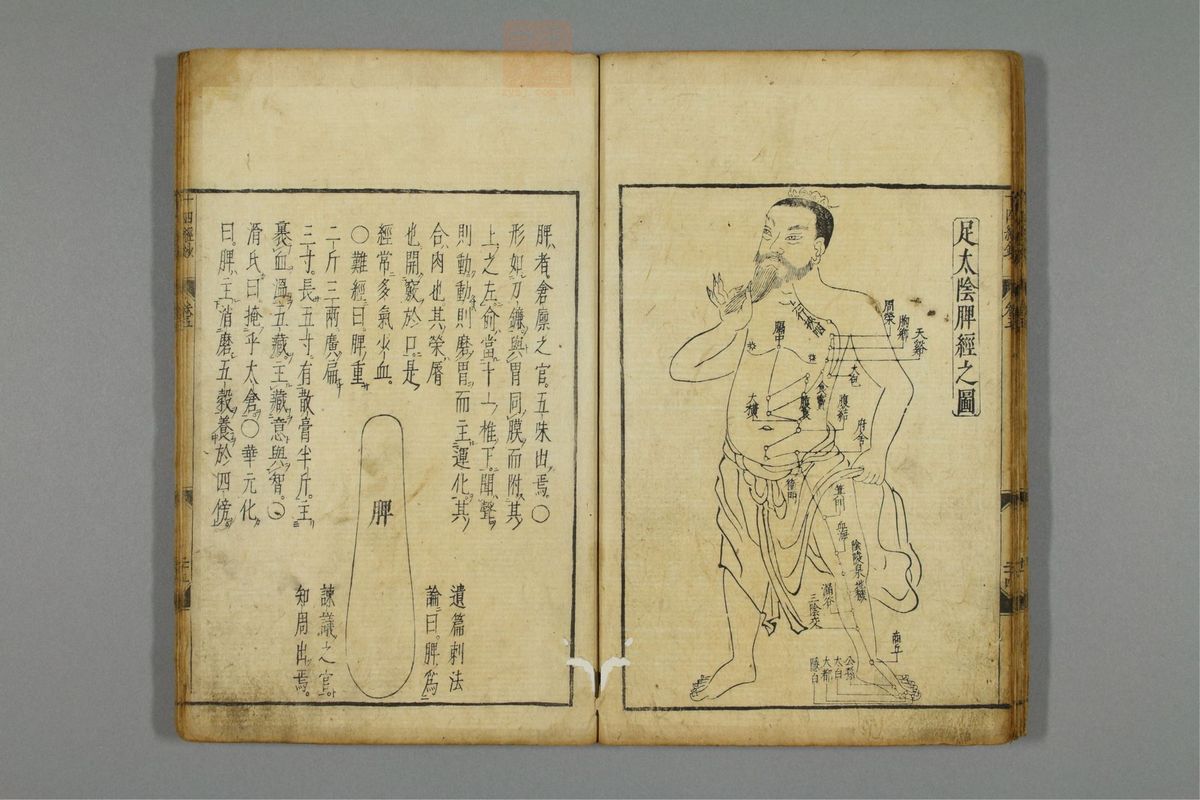 足太陰脾經之圖
周榮
胸鄉
天谿
大包
食竇
腹結
府舍
大橫
衝門
箕門
血海
陰陵泉
地機
漏谷
三陰交
商丘
公孫
太白
大都
隱白
脾者倉廩之官五味出焉〇
形如刀鎌與胃同膜而附其
上之左俞當十一椎下聞聲
則動動則磨胃而主運化其
合肉也其榮脣
也開竅於口是
經常多氣少血
〇難經曰脾重
二斤三兩廣扁
三寸長五寸有散膏半斤主
裹血溫五藏主藏意與智〇
滑氏曰掩乎太倉〇華元化
曰脾主消磨五穀養於四傍
脾
遺篇刺法
論曰脾爲
諫議之官
知周出焉
十四經